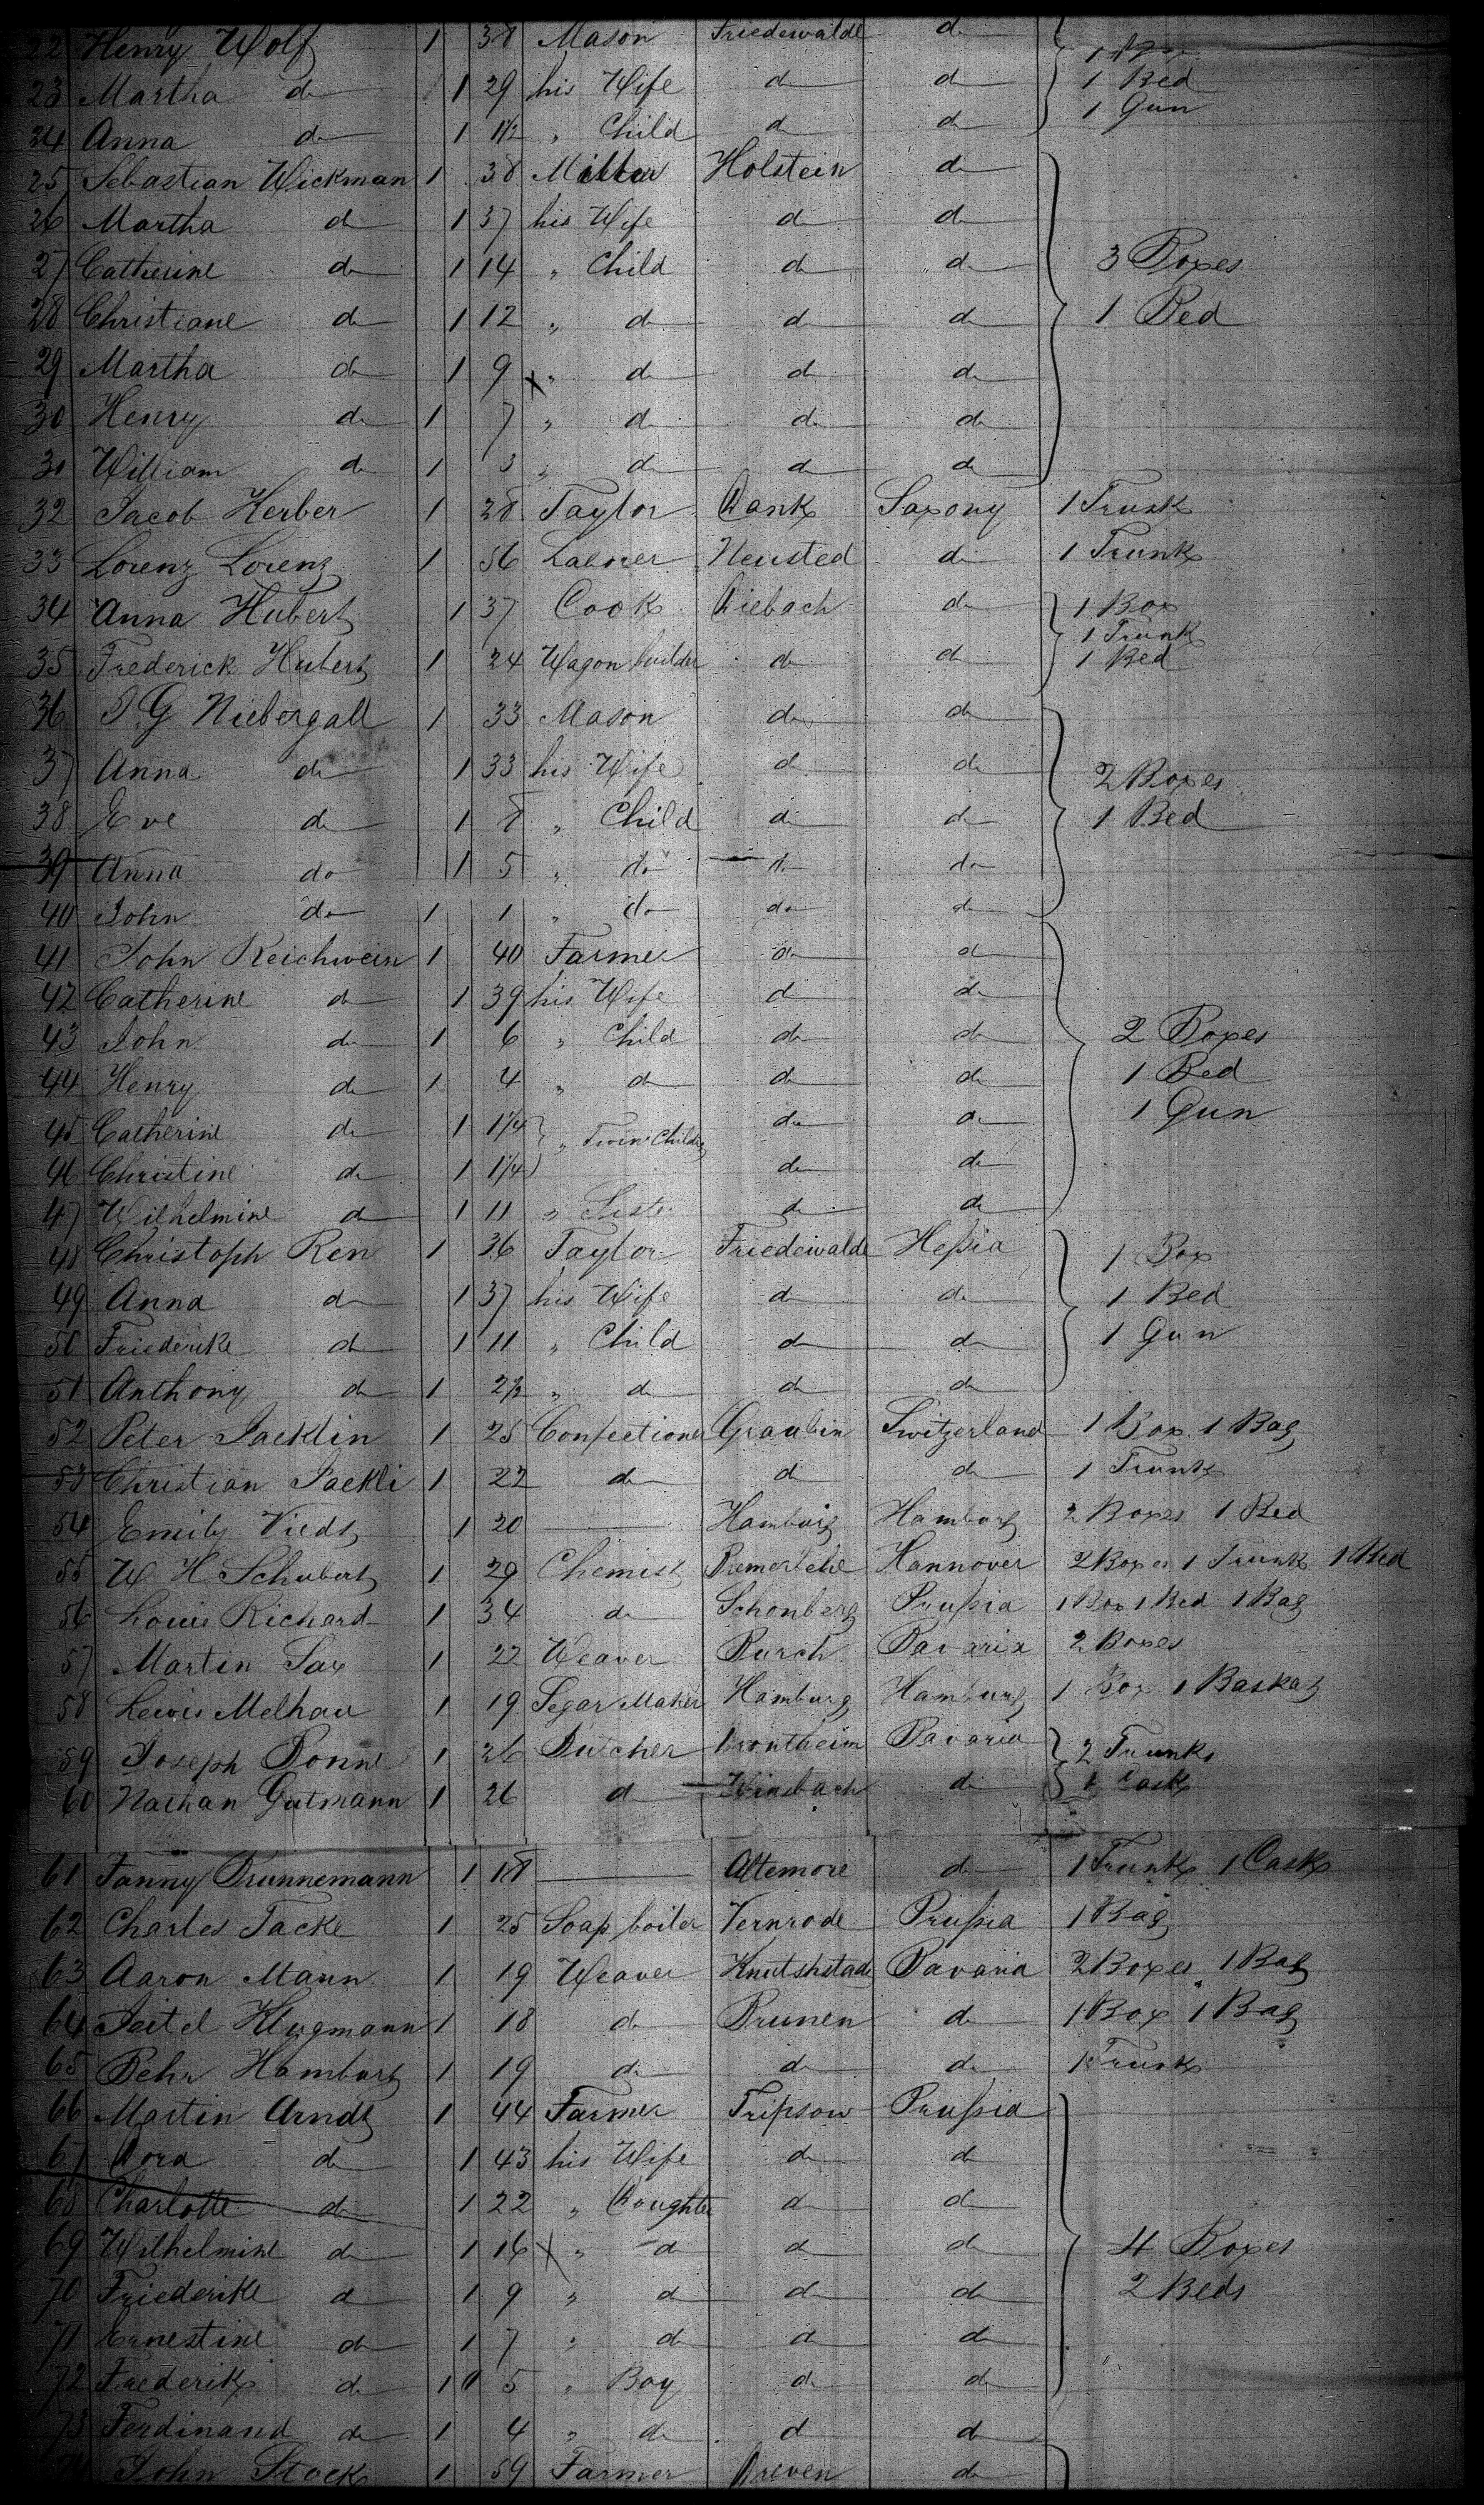 22 Henry Wolf 1 38 Mason Friedewalde d
23 Martha d 1 29 his Wife d d 1 Bed
24 Anna d 1 1½ " Child d d 1 Gun
25 Sebastian Wickman 1 38 Miller Holstein d
26 Martha d 1 37 his Wife d d
27 Catherine d 1 14 " Child d d 3 Boxes
28 Christiane d 1 12 " d d d 1 Bed
29 Martha d 1 9 x " d d d
30 Henry d 1 7 " d d d
31 William d 1 3 " d d d
32 Jacob Herber 1 28 Taylor Dank Saxony 1 Trunk
33 Lorenz Lorenz 1 56 Laborer Neusted d 1 Trunk
34 Anna Hubert 1 37 Cook Diebach d 1 Box
1 Trunk
35 Frederick Hubert 1 24 Wagon builder d d 1 Bed
36 J G Niebergall 1 33 Mason d d
37 Anna d 1 33 his Wife d d 2 Boxes
38 Eve d 1 8 " Child d d 1 Bed
39 Anna do 1 5 " do do do
40 John do 1 1 " do do do
41 John Reichwein 1 40 Farmer d d
42 Catherine d 1 39 his Wife d d
43 John d 1 6 " Child d d 2 Boxes
44 Henry d 1 4 " d d d 1 Bed
45 Catherine d 1 1¼ " Twin Childr d d 1 Gun
46 Christine d 1 1¼ d d
47 Wilhelmine d 1 11 " Sister d d
48 Christoph Ren 1 36 Taylor Friedewalde Heßia 1 Box
49 Anna d 1 37 his Wife d d 1 Bed
50 Friederike d 1 11 " Child d d 1 Gun
51 Anthony d 1 2½ " d d d
52 Peter Jacklin 1 25 Confectioner Graubin Switzerland 1 Box 1 Bag
53 Christian Jackli 1 22 d d d 1 Trunk
54 Emily Viedt 1 20 Hamburg Hamburg 2 Boxes 1 Bed
55 W H Schubert 1 29 Chemist Bremerlehe Hannover 2 Boxes 1 Trunk 1 Bed
56 Louis Richard 1 34 d Schonberg Prußia 1 Box 1 Bed 1 Bag
57 Martin Sax 1 22 Weaver Burch Bavaria 2 Boxes
58 Lewis Melhau 1 19 Segar Maker Hamburg Hamburg 1 Box 1 Baskat
59 Joseph Bonne 1 26 Butcher Bavaria 2 Trunks
60 Nathan Gutmann 1 26 d Winsbach d 1 Cask
61 Fanny Brunnemann 1 18 Altemore d 1 Trunk 1 Cask
62 Charles Tacke 1 25 Soap boiler Vernrode Prußia 1 Bag
63 Aaron Mann 1 19 Weaver Knutshstade Bavaria 2 Boxes 1 Bag
64 Seitel Klugmann 1 18 d Brunen d 1 Box 1 Bag
65 Behr Hamburg 1 19 d d d 1 Trunk
66 Martin Arndt 1 44 Farmer Tripsow Prußia
67 Dora d 1 43 his Wife d d
68 Charlotte d 1 22 " Doughter d d
69 Wilhelmine d 1 16 x " d d d 4 Boxes
70 Friederike d 1 9 " d d d 2 Beds
71 Ernestine d 1 7 " d d d
72 Frederik d 1 5 " Boy d d
73 Ferdinand d 1 4 " d d d
John Stock 1 59 Farmer Dreven d